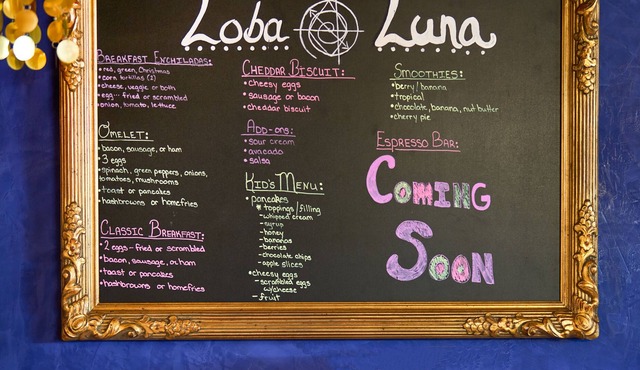 Loba Luna
BREAKFAST ENCHILADAS:
• red, green, Christmas
• corn tortillas (2)
• cheese, veggie or both
• egg... fried or scrambled
• onion, tomato, lettuce
OMELET:
• bacon, sausage, or ham
• 3 eggs
• spinach, green peppers, onions,
tomatoes, mushrooms
• toast or pancakes
• hashbrowns or homefries
CLASSIC BREAKFAST:
• 2 eggs - fried or scrambled
• bacon, sausage, or ham
• toast or pancakes
• hashbrowns or homefries
CHEDDAR BISCUIT:
• cheesy eggs
• sausage or bacon
• cheddar biscuit
ADD-ONS:
• sour cream
• avocado
• salsa
KID'S MENU:
• pancakes
* toppings/filling
- whipped cream
- syrup
- honey
- bananas
- berries
- chocolate chips
- apple slices
• cheesy eggs
- scrambled eggs
w/cheese
- fruit
SMOOTHIES:
• berry/banana
• tropical
• chocolate, banana, nut butter
• cherry pie
ESPRESSO BAR:
COMING
SOON